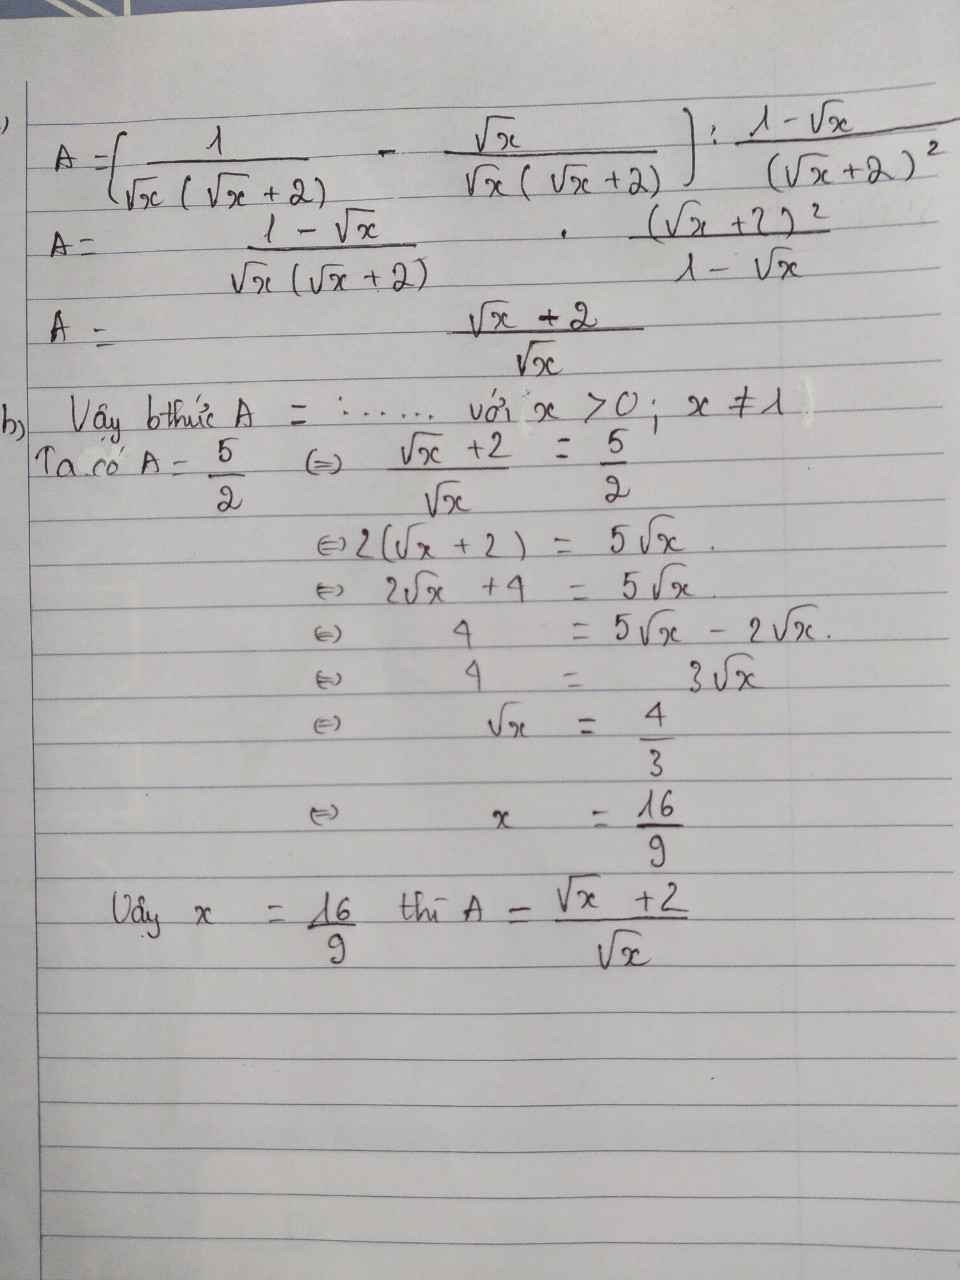 )
A = ( 1 / √x ( √x + 2 ) - √x / √x ( √x + 2 ) ) : 1 - √x / ( √x + 2 )²
A = 1 - √x / √x ( √x + 2 ) . ( √x + 2 )² / 1 - √x
A = √x + 2 / √x
Vậy bthức A = :...... với x > 0 ; x ≠ 1
b) Ta có A = 5/2 (=) √x + 2 / √x = 5/2
(=) 2 ( √x + 2 ) = 5√x .
(=) 2√x + 4 = 5√x .
(=) 4 = 5√x - 2√x .
(=) 4 = 3√x
(=) √x = 4/3
(=) x = 16/9
Vậy x = 16/9 thì A = √x + 2 / √x